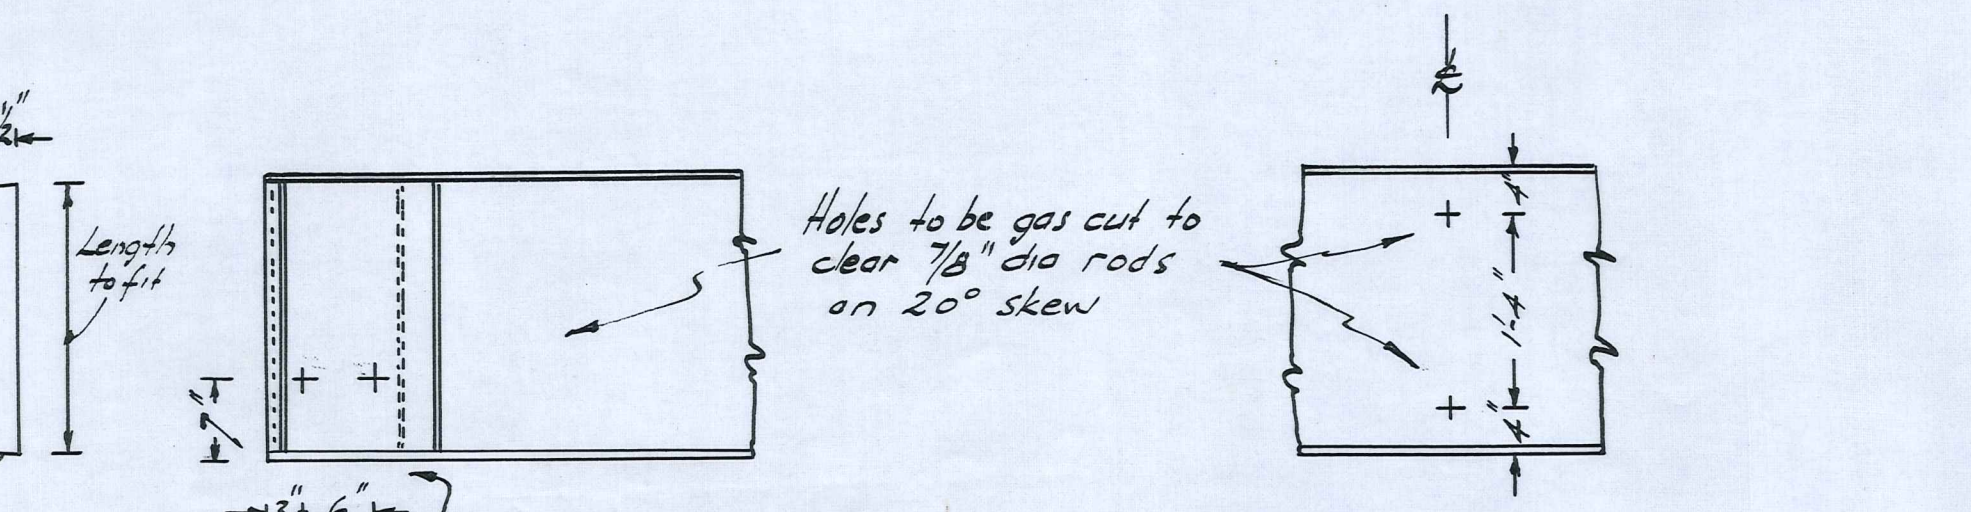 ½"
℄
Length
to fit
7"
Holes to be gas cut to
clear 7/8" dia rods
on 20° skew
4"
1'-4"
4"
3" 6"